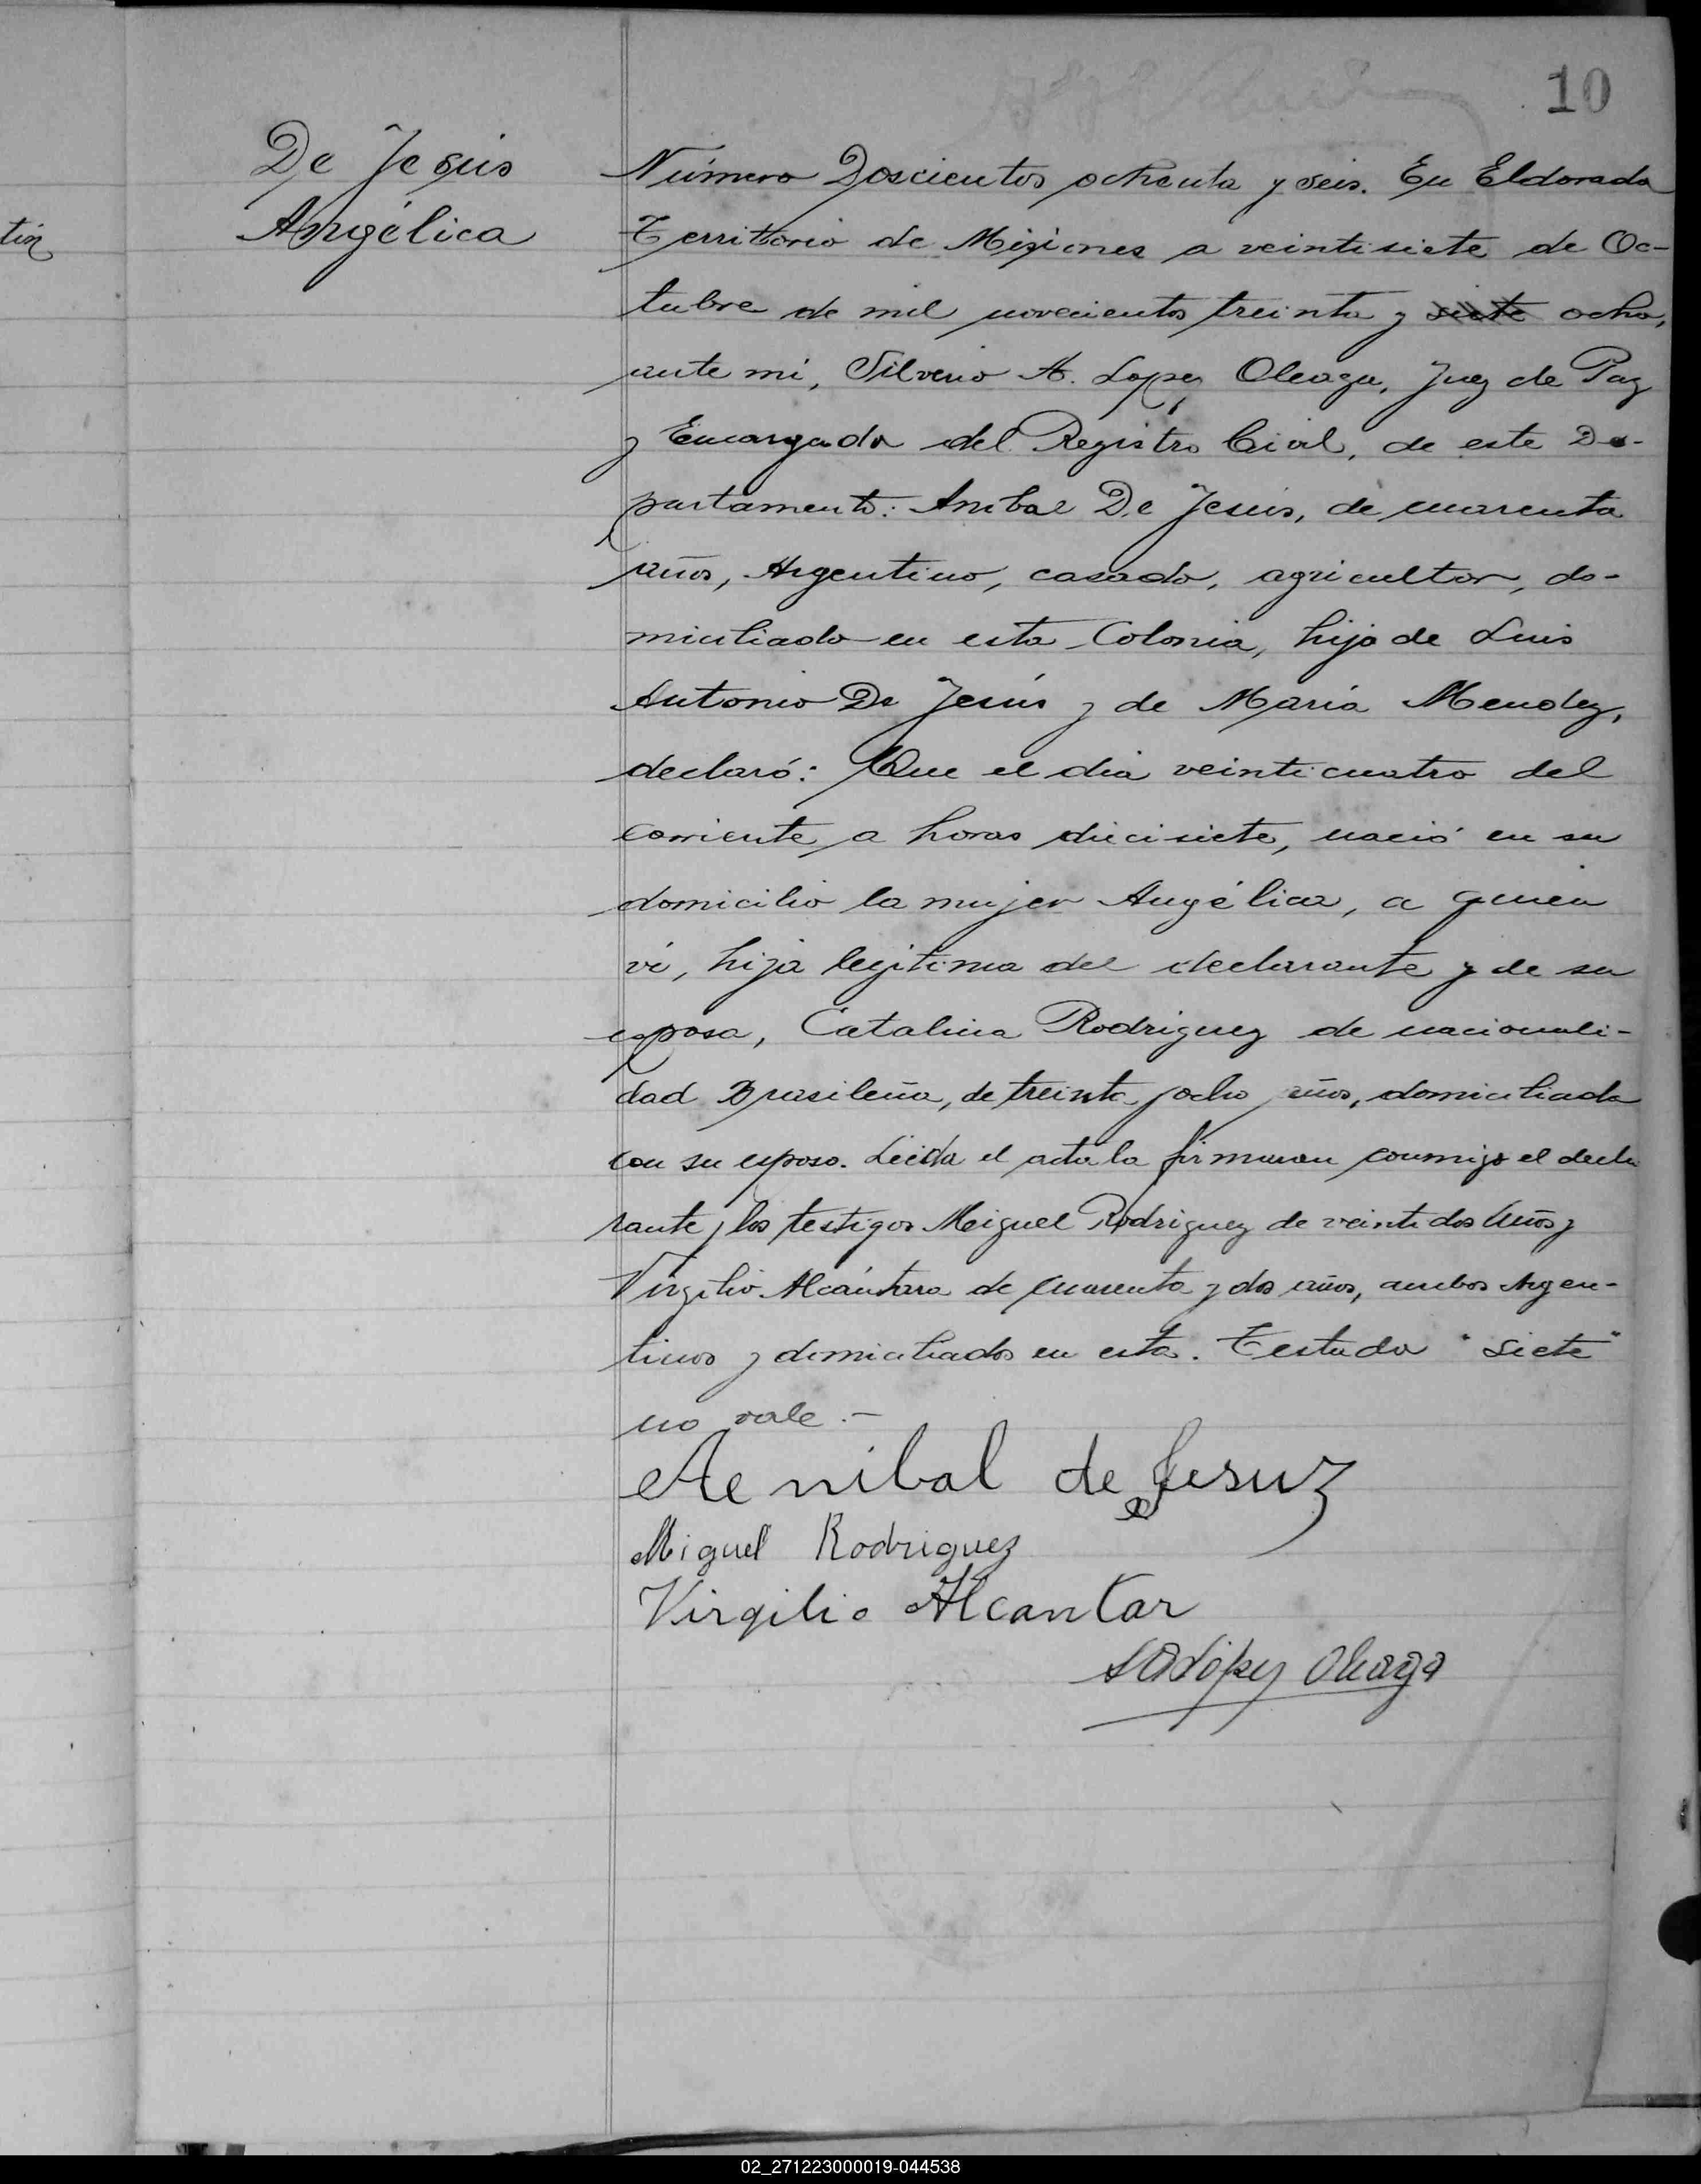 10
De Jesús
Angélica
Número Doscientos ochenta y seis. En Eldorado
Territorio de Misiones a veintisiete de Oc-
tubre de mil novecientos treinta y siete ocho,
ante mi, Silverio A. Lopez Oleaga, Juez de Paz
y Encargado del Registro Civil, de este De-
partamento: Anibal De Jesús, de cuarenta
años, Argentino, casado, agricultor, do-
miciliado en esta Colonia, hijo de Luis
Antonio De Jesús y de María Mendez,
declaró: Que el dia veinticuatro del
corriente a horas diecisiete, nació en su
domicilio la mujer Angélica, a quien
vi, hija legitima del declarante y de su
esposa, Catalina Rodriguez de nacionali-
dad Brasileña, de treinta y ocho años, domiciliada
con su esposo. Leida el acta la firmaron conmigo el decla
rante y los testigos Miguel Rodriguez de veintidos años y
Virgilio Alcántara de cuarenta y dos años, ambos Argen-
tinos y domiciliados en esta. Testado "siete"
no vale.-
Aenibal de Jesuz
Miguel Rodriguez
Virgilio Alcantar
SALópez Oleaga
02_271223000019-044538